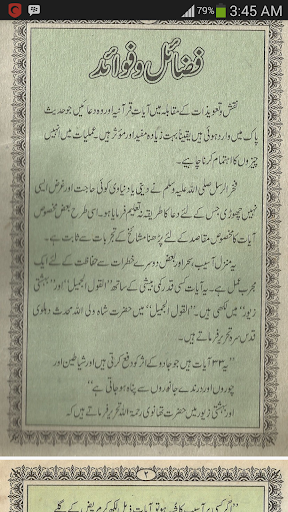 79% 3:45 AM
فضائل و فوائد
نقش و تعویذات کے مقابلہ میں آیات قرآنیہ اور وہ دعائیں جو حدیث
پاک میں وارد ہوئی ہیں یقیناً بہت زیادہ مفید اور مؤثر ہیں عملیات میں انہیں
چیزوں کا اہتمام کرنا چاہیے۔
فخر الرسل صلی اللہ علیہ وسلم نے دینی یا دنیاوی کوئی حاجت اور غرض ایسی
نہیں چھوڑی جس کے لئے دعا کا طریقہ نہ تعلیم فرمایا ہو۔ اسی طرح بعض مخصوص
آیات کا مخصوص مقاصد کے لئے پڑھنا مشائخ کے تجربات سے ثابت ہے۔
یہ منزل آسیب، سحر اور بعض دوسرے خطرات سے حفاظت کے لئے ایک
مجرب عمل ہے۔ یہ آیات کسی قدر کمی بیشی کے ساتھ "القول الجمیل" اور "بہشتی
زیور" میں لکھی ہیں۔ "القول الجمیل" میں حضرت شاہ ولی اللہ محدث دہلوی
قدس سرہ تحریر فرماتے ہیں۔
"یہ ۳۳ آیات ہیں جو جادو کے اثر کو دفع کرتی ہیں اور شیاطین اور
چوروں اور درندے جانوروں سے پناہ ہو جاتی ہے"
اور بہشتی زیور میں حضرت تھانوی رحمۃ اللہ تحریر فرماتے ہیں۔
۲
"اگر کسی پر آسیب کا شبہ ہو تو آیات ذیل لکھ کر مریض کے گلے